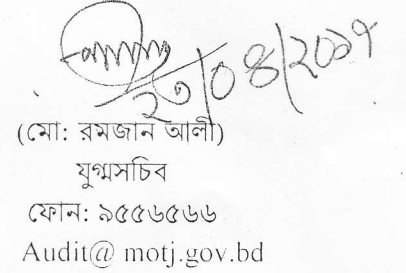 ২৩/০৪/২০১৭
(মো: রমজান আলী)
যুগ্মসচিব
ফোন: ৯৫৫৬৫৬৬
Audit@ motj.gov.bd